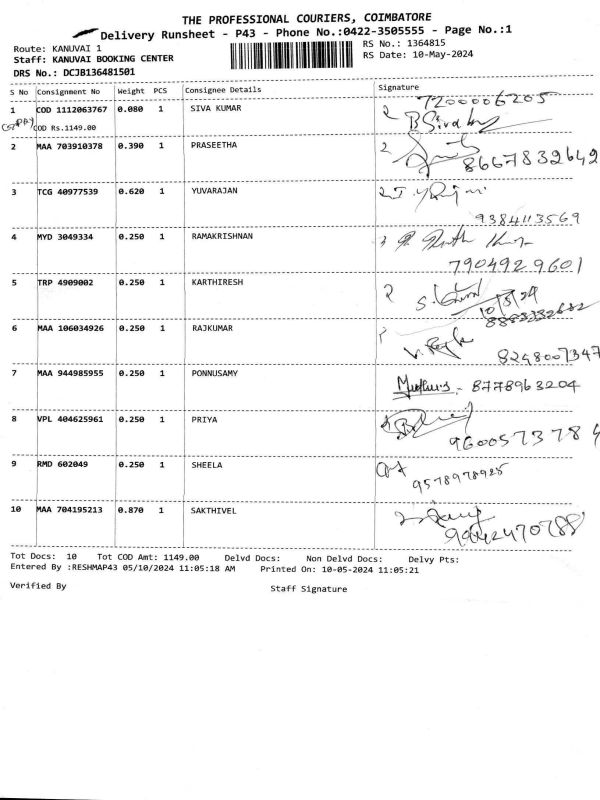 THE PROFESSIONAL COURIERS, COIMBATORE
Delivery Runsheet - P43 - Phone No.:0422-3505555 - Page No.:1
Route: KANUVAI 1
RS No.: 1364815
Staff: KANUVAI BOOKING CENTER
RS Date: 10-May-2024
DRS No.: DCJB136481501
S No Consignment No Weight PCS Consignee Details Signature
1 COD 1112063767 0.080 1 SIVA KUMAR 7200006205
COD Rs.1149.00 B Siva
2 MAA 703910378 0.390 1 PRASEETHA
8667832642
3 TCG 40977539 0.620 1 YUVARAJAN
9384113569
4 MYD 3049334 0.250 1 RAMAKRISHNAN
7904929601
5 TRP 4909002 0.250 1 KARTHIRESH
10/5/24
6 MAA 106034926 0.250 1 RAJKUMAR
8248007347
7 MAA 944985955 0.250 1 PONNUSAMY
8778963204
8 VPL 404625961 0.250 1 PRIYA
9600573784
9 RMD 602049 0.250 1 SHEELA
9578978985
10 MAA 704195213 0.870 1 SAKTHIVEL
Tot Docs: 10 Tot COD Amt: 1149.00 Delvd Docs: Non Delvd Docs: Delvy Pts:
Entered By :RESHMAP43 05/10/2024 11:05:18 AM Printed On: 10-05-2024 11:05:21
Verified By Staff Signature